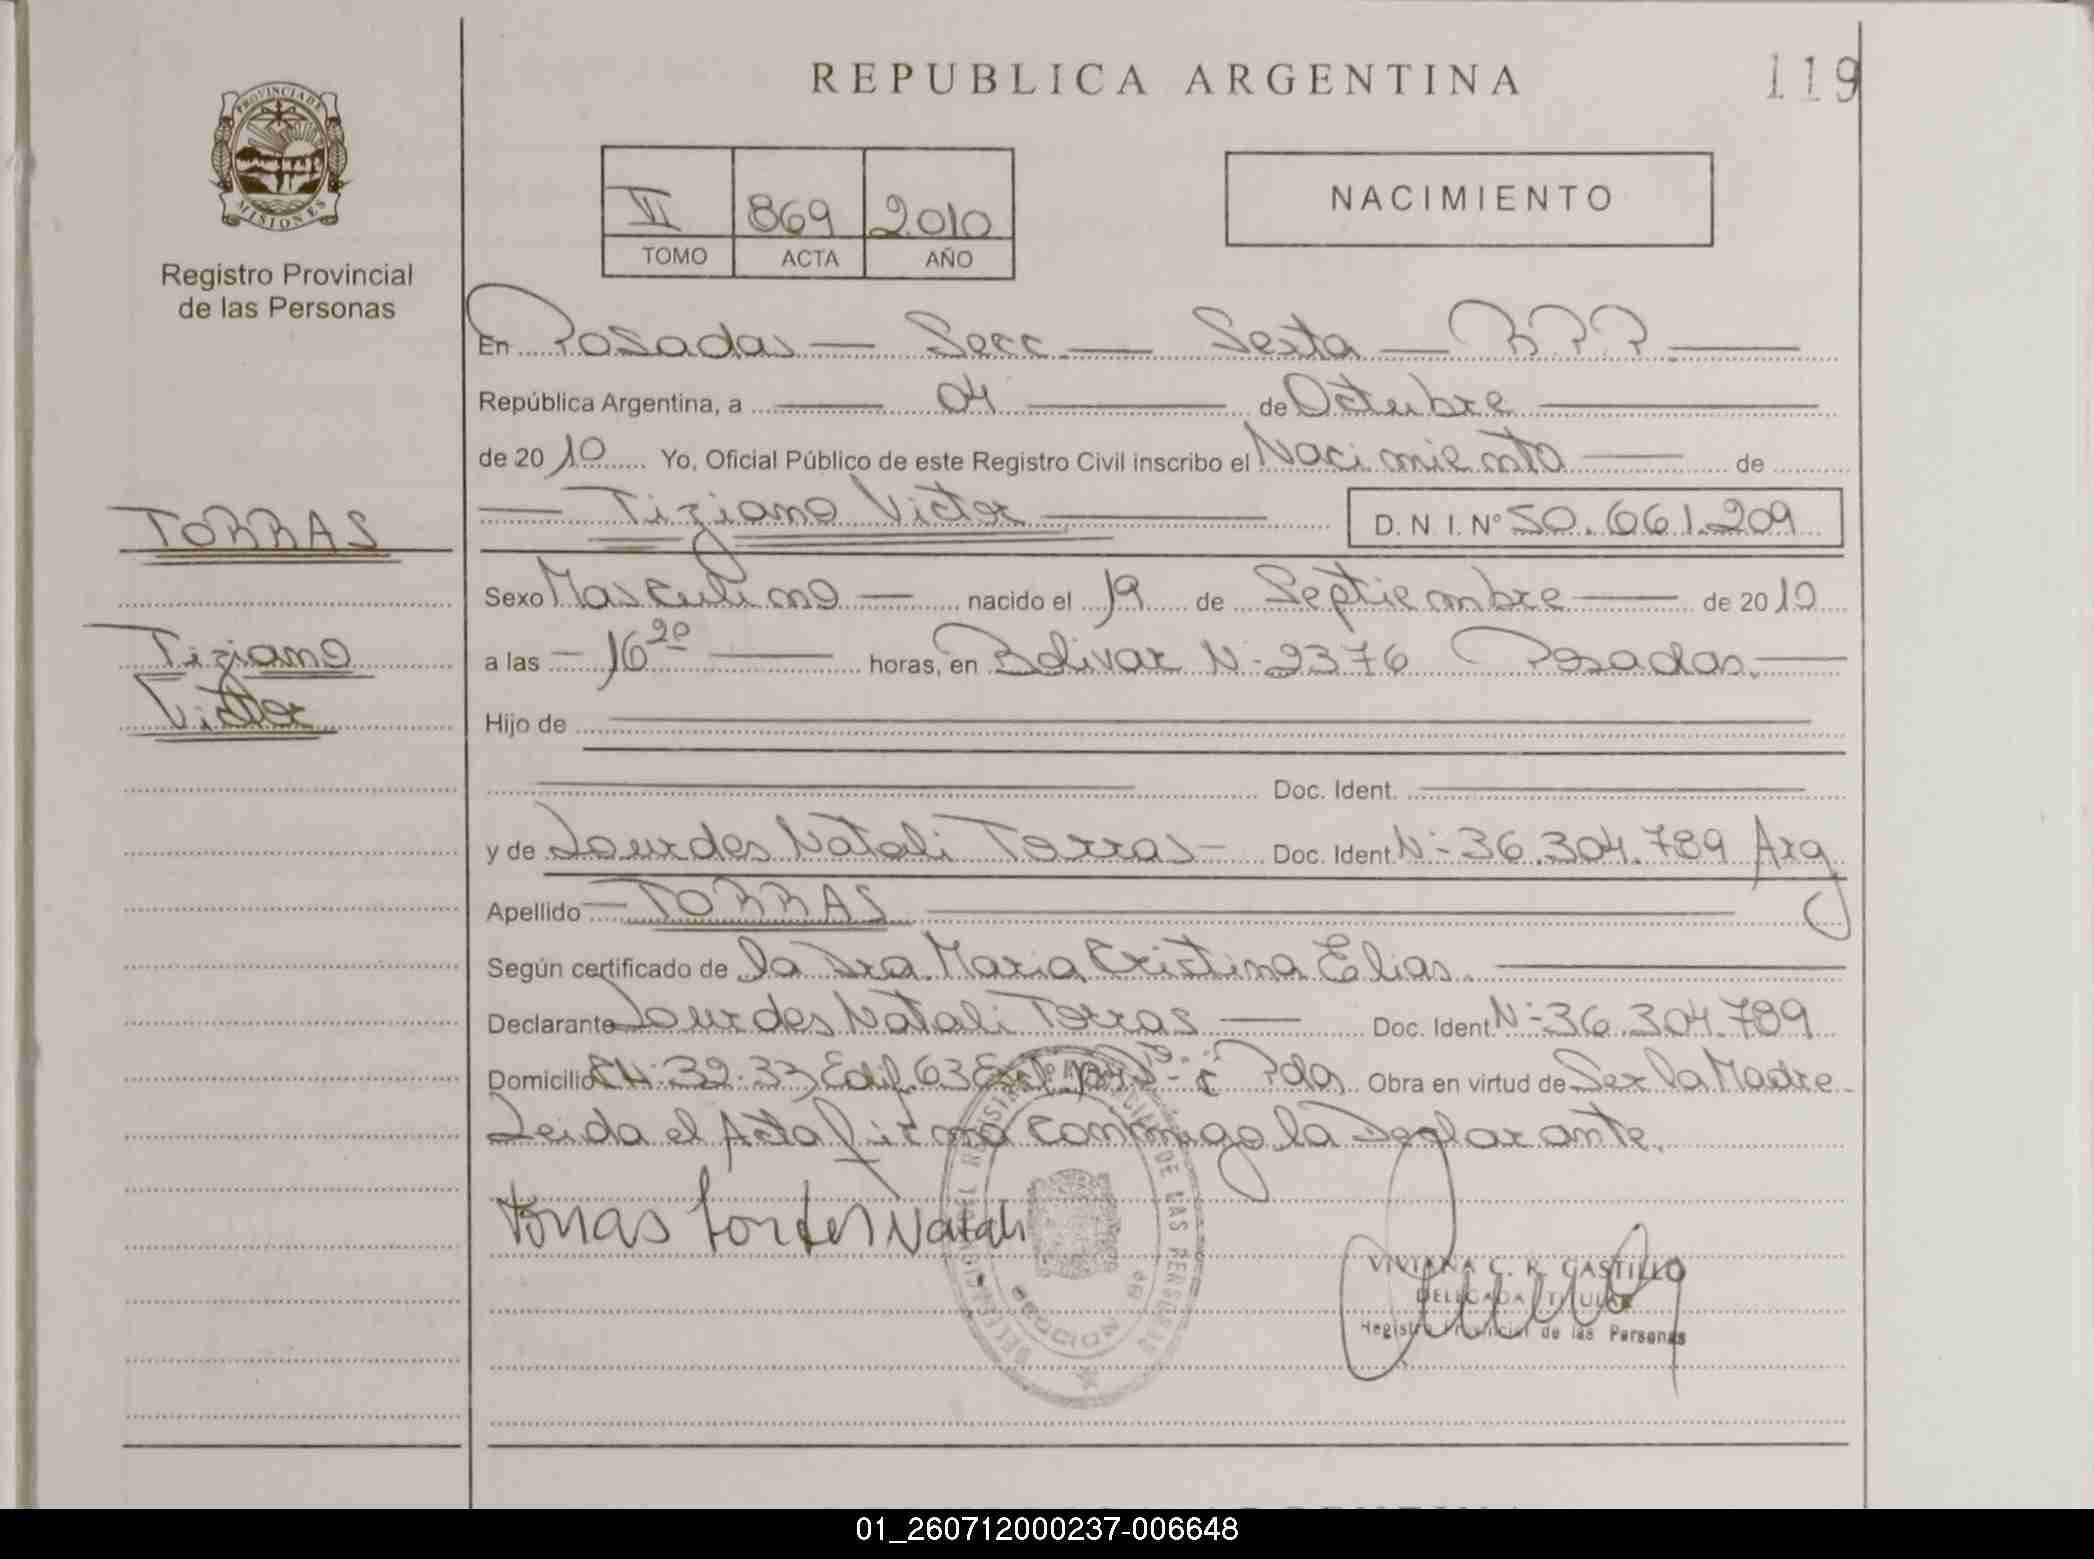 REPUBLICA ARGENTINA
119
PROVINCIA DE
MISIONES
Registro Provincial
de las Personas
VI 869 2.010
TOMO ACTA AÑO
NACIMIENTO
En Posadas — Secc. — Sexta — R.P.P. —
República Argentina, a — 04 — de Octubre —
de 2010 Yo, Oficial Público de este Registro Civil inscribo el Nacimiento — de
— Tiziano Victor — D. N. I. Nº 50.661.209
TORRAS
Tiziano
Victor
Sexo Masculino — nacido el 19 de Septiembre — de 2010
a las — 16 20 — horas, en Bolivar Nº 2376 Posadas. —
Hijo de —
— Doc. Ident. —
y de Lourdes Natali Torras — Doc. Ident Nº 36.304.789 Arg
Apellido — TORRAS —
Según certificado de la Dra. Maria Cristina Elias. —
Declarante Lourdes Natali Torras — Doc. Ident. Nº 36.304.789
Domicilio CH. 32.33 Edif. 63 Pdas Obra en virtud de Ser la Madre -
Leida el Acta firma conmigo la Declarante.
Torras Lourdes Natali
VIVIANA C. R. CASTILLO
DELEGADA TITULAR
Registro Provincial de las Personas
01_260712000237-006648